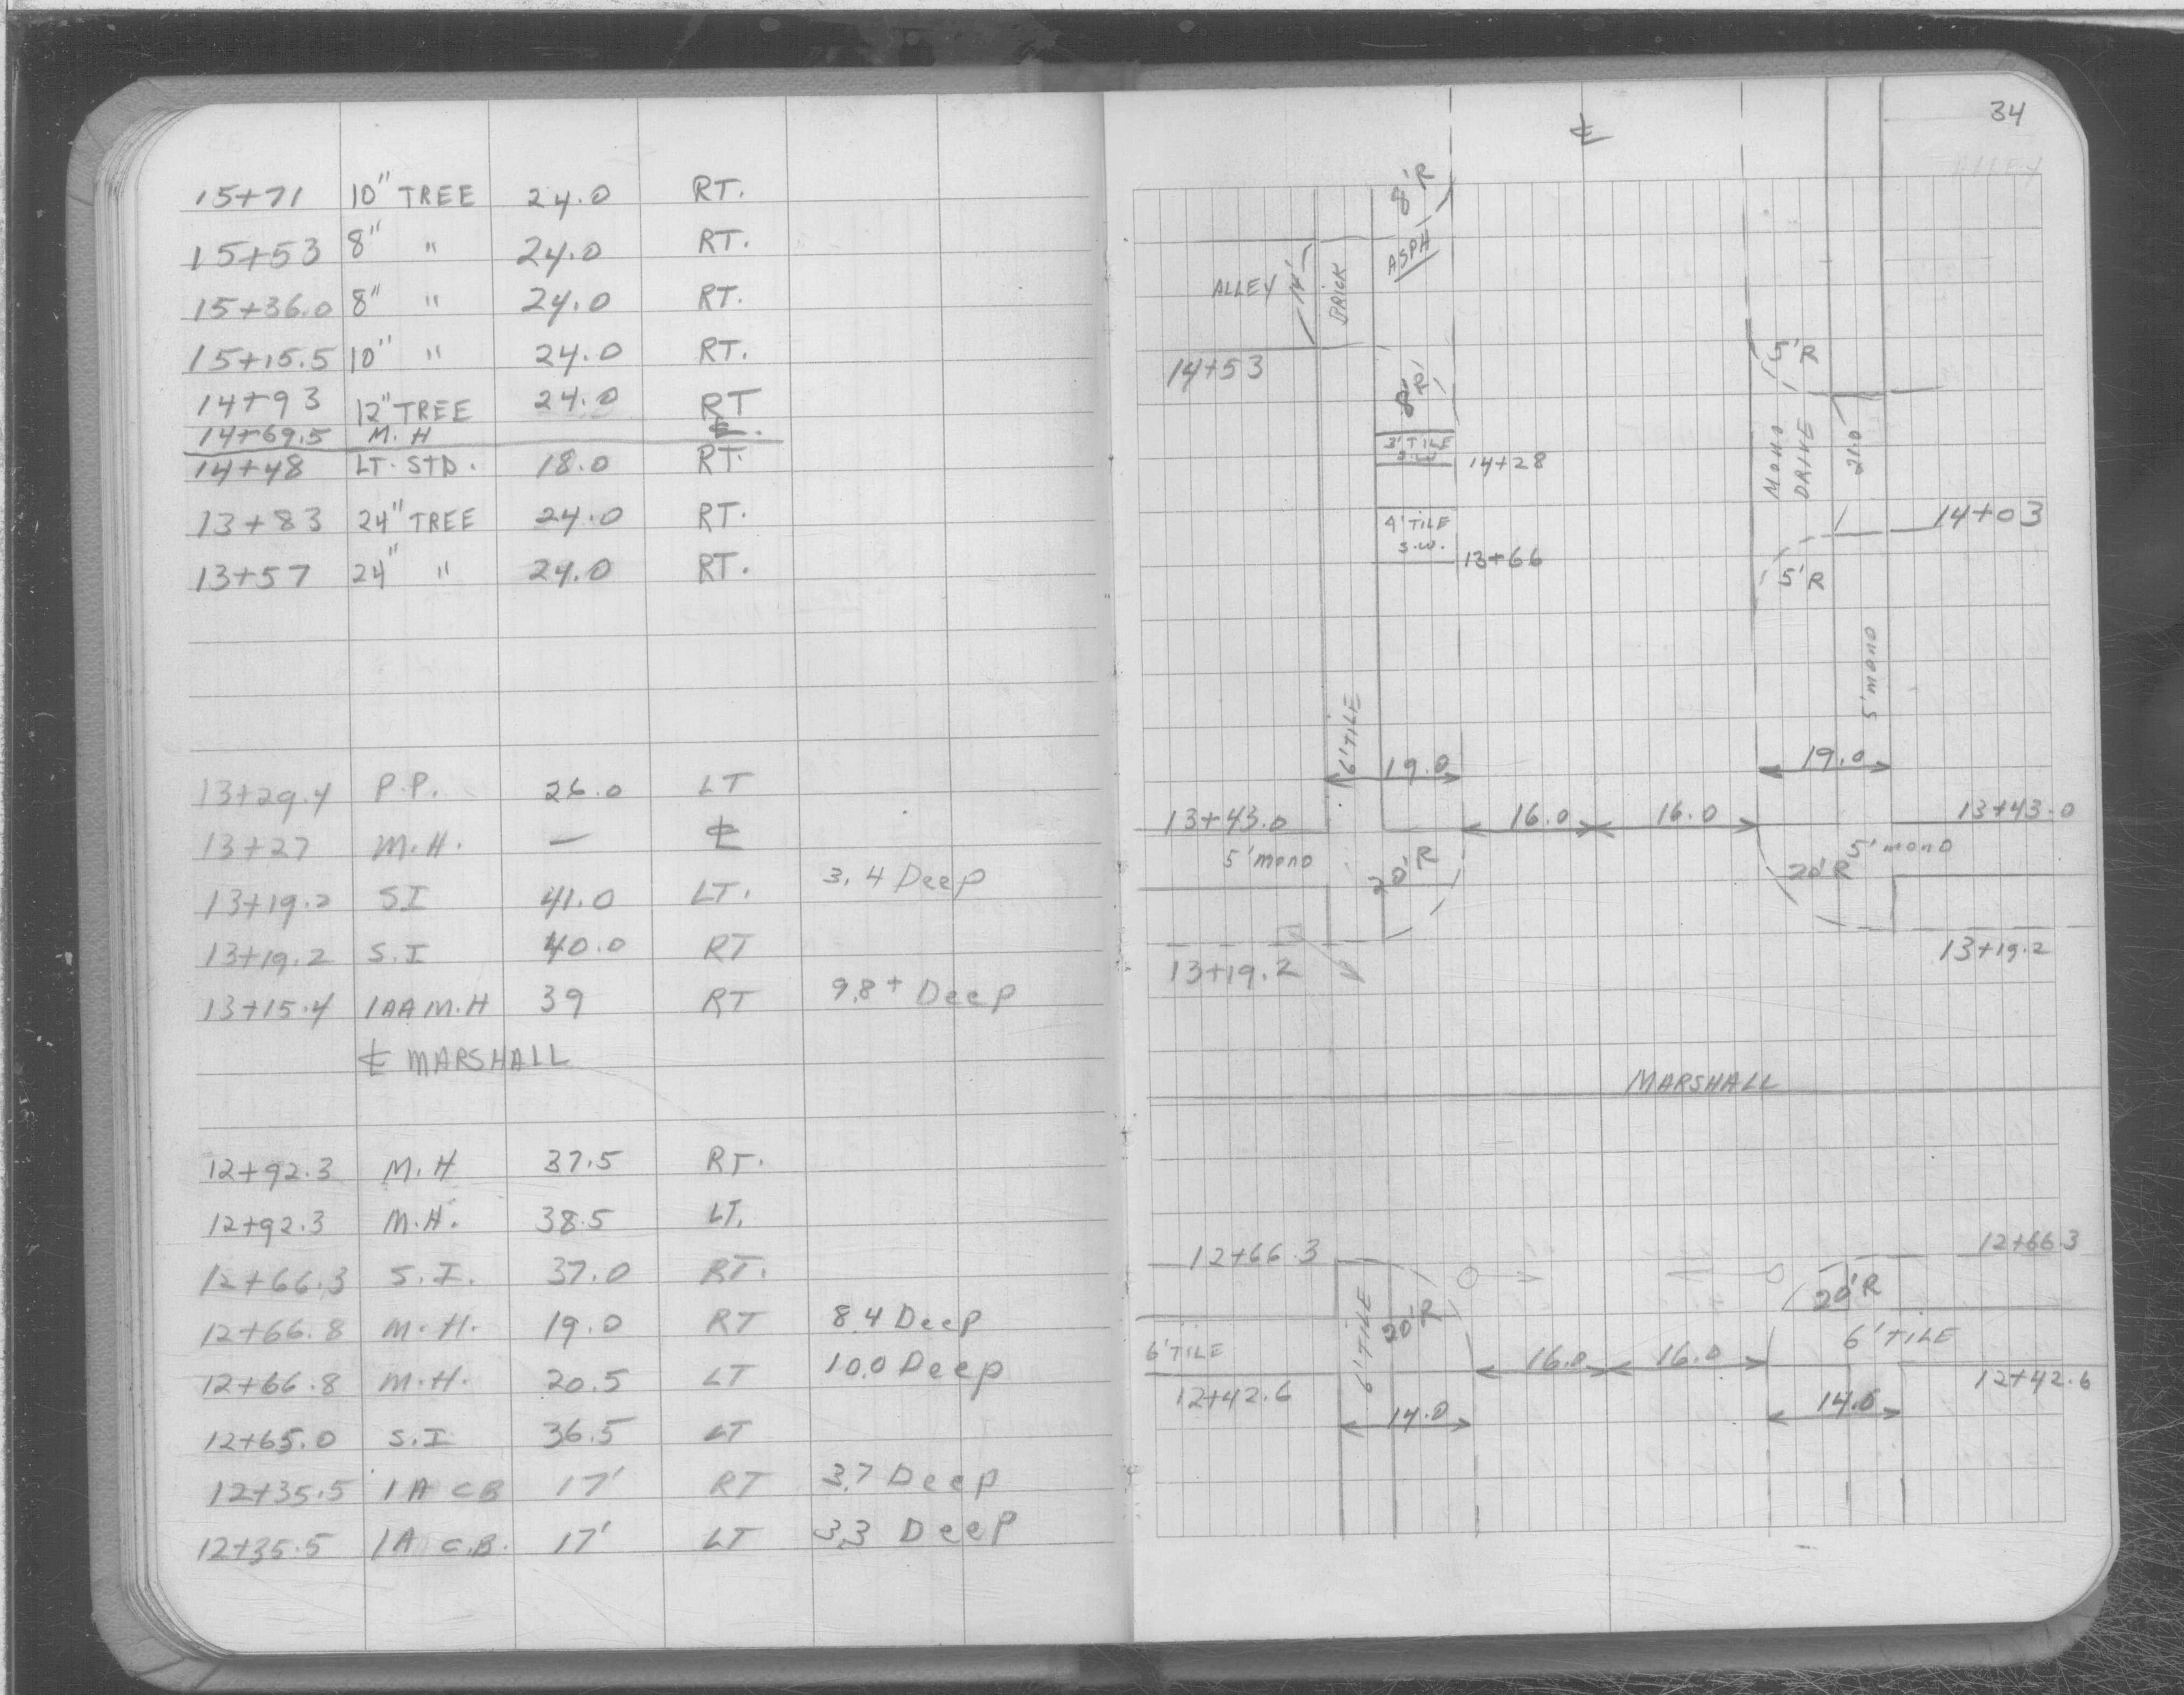 15+71 10" TREE 24.0 RT.
15+53 8" " 24.0 RT.
15+36.0 8" " 24.0 RT.
15+15.5 10" " 24.0 RT.
14+93 12" TREE 24.0 RT
14+69.5 M.H ℄.
14+48 LT. STD. 18.0 RT.
13+83 24" TREE 24.0 RT.
13+57 24" " 24.0 RT.
13+29.4 P.P. 26.0 LT
13+27 M.H. — ℄
13+19.2 SI 41.0 LT. 3.4 Deep
13+19.2 S.I 40.0 RT
13+15.4 1AA M.H 39 RT 9.8+ Deep
℄ MARSHALL
12+92.3 M.H 37.5 RT.
12+92.3 M.H. 38.5 LT.
12+66.3 S.I. 37.0 RT.
12+66.8 M.H. 19.0 RT 8.4 Deep
12+66.8 M.H. 20.5 LT 10.0 Deep
12+65.0 S.I 36.5 LT
12+35.5 1A CB 17' RT 3.7 Deep
12+35.5 1A C.B. 17' LT 3.3 Deep
34
℄
ALLEY
8'R
ASPH
ALLEY 14' BRICK
14+53
8'R
5'R
3' TILE
S.W.
14+28
MONO
DRIVE
21.0
4' TILE
S.W.
13+66
14+03
5'R
5' mono
6' TILE
19.0 19.0
13+43.0 16.0 16.0 13+43.0
5' mono 20'R 20'R 5' mono
13+19.2 13+19.2
MARSHALL
12+66.3 12+66.3
6' TILE 20'R 20'R
6' TILE 16.0 16.0 6' TILE
12+42.6 12+42.6
14.0 14.0